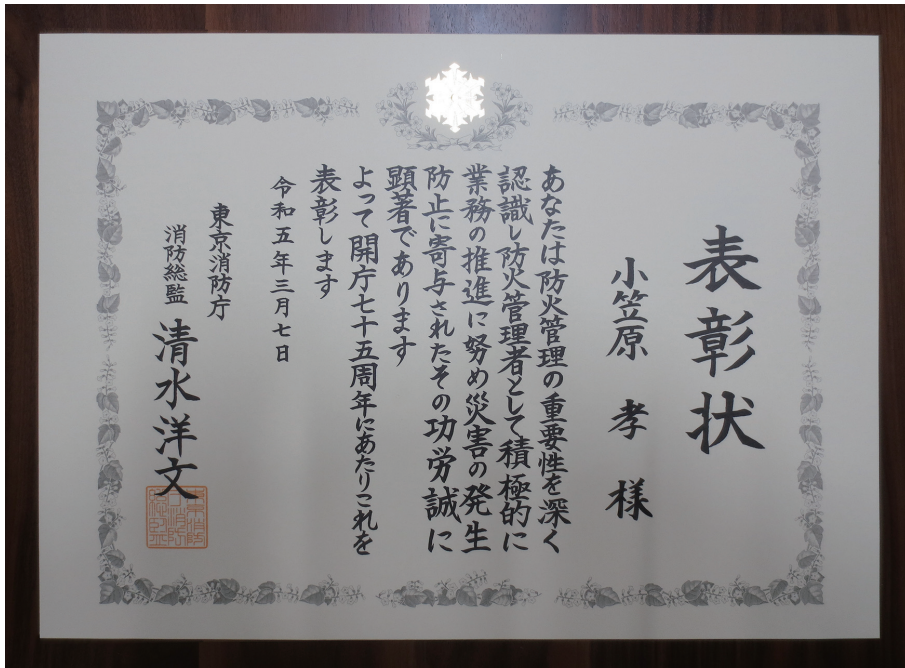 表彰状
小笠原 孝 様
あなたは防火管理の重要性を深く
認識し防火管理者として積極的に
業務の推進に努め災害の発生
防止に寄与されたその功労誠に
顕著であります
よって開庁七十五周年にあたりこれを
表彰します
令和五年三月七日
東京消防庁
消防総監 清水洋文